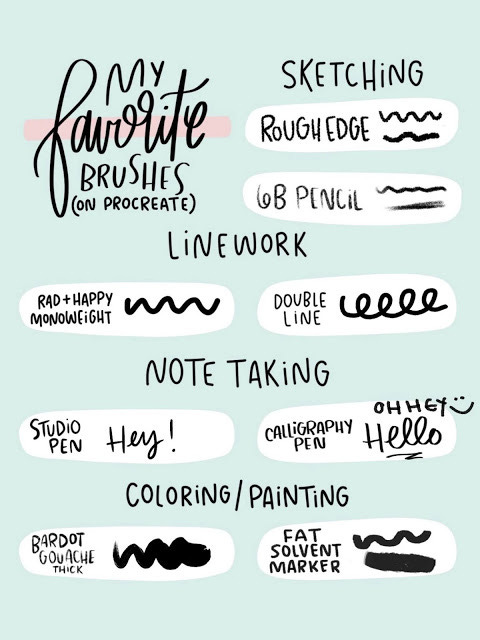 MY
favorite
BRUSHES
(ON PROCREATE)
SKETCHING
ROUGH EDGE
6B PENCIL
LINEWORK
RAD+HAPPY
MONOWEIGHT
DOUBLE
LINE
NOTE TAKING
STUDIO
PEN
Hey!
CALLIGRAPHY
PEN
OH HEY
Hello
COLORING/PAINTING
BARDOT
GOUACHE
THICK
FAT
SOLVENT
MARKER